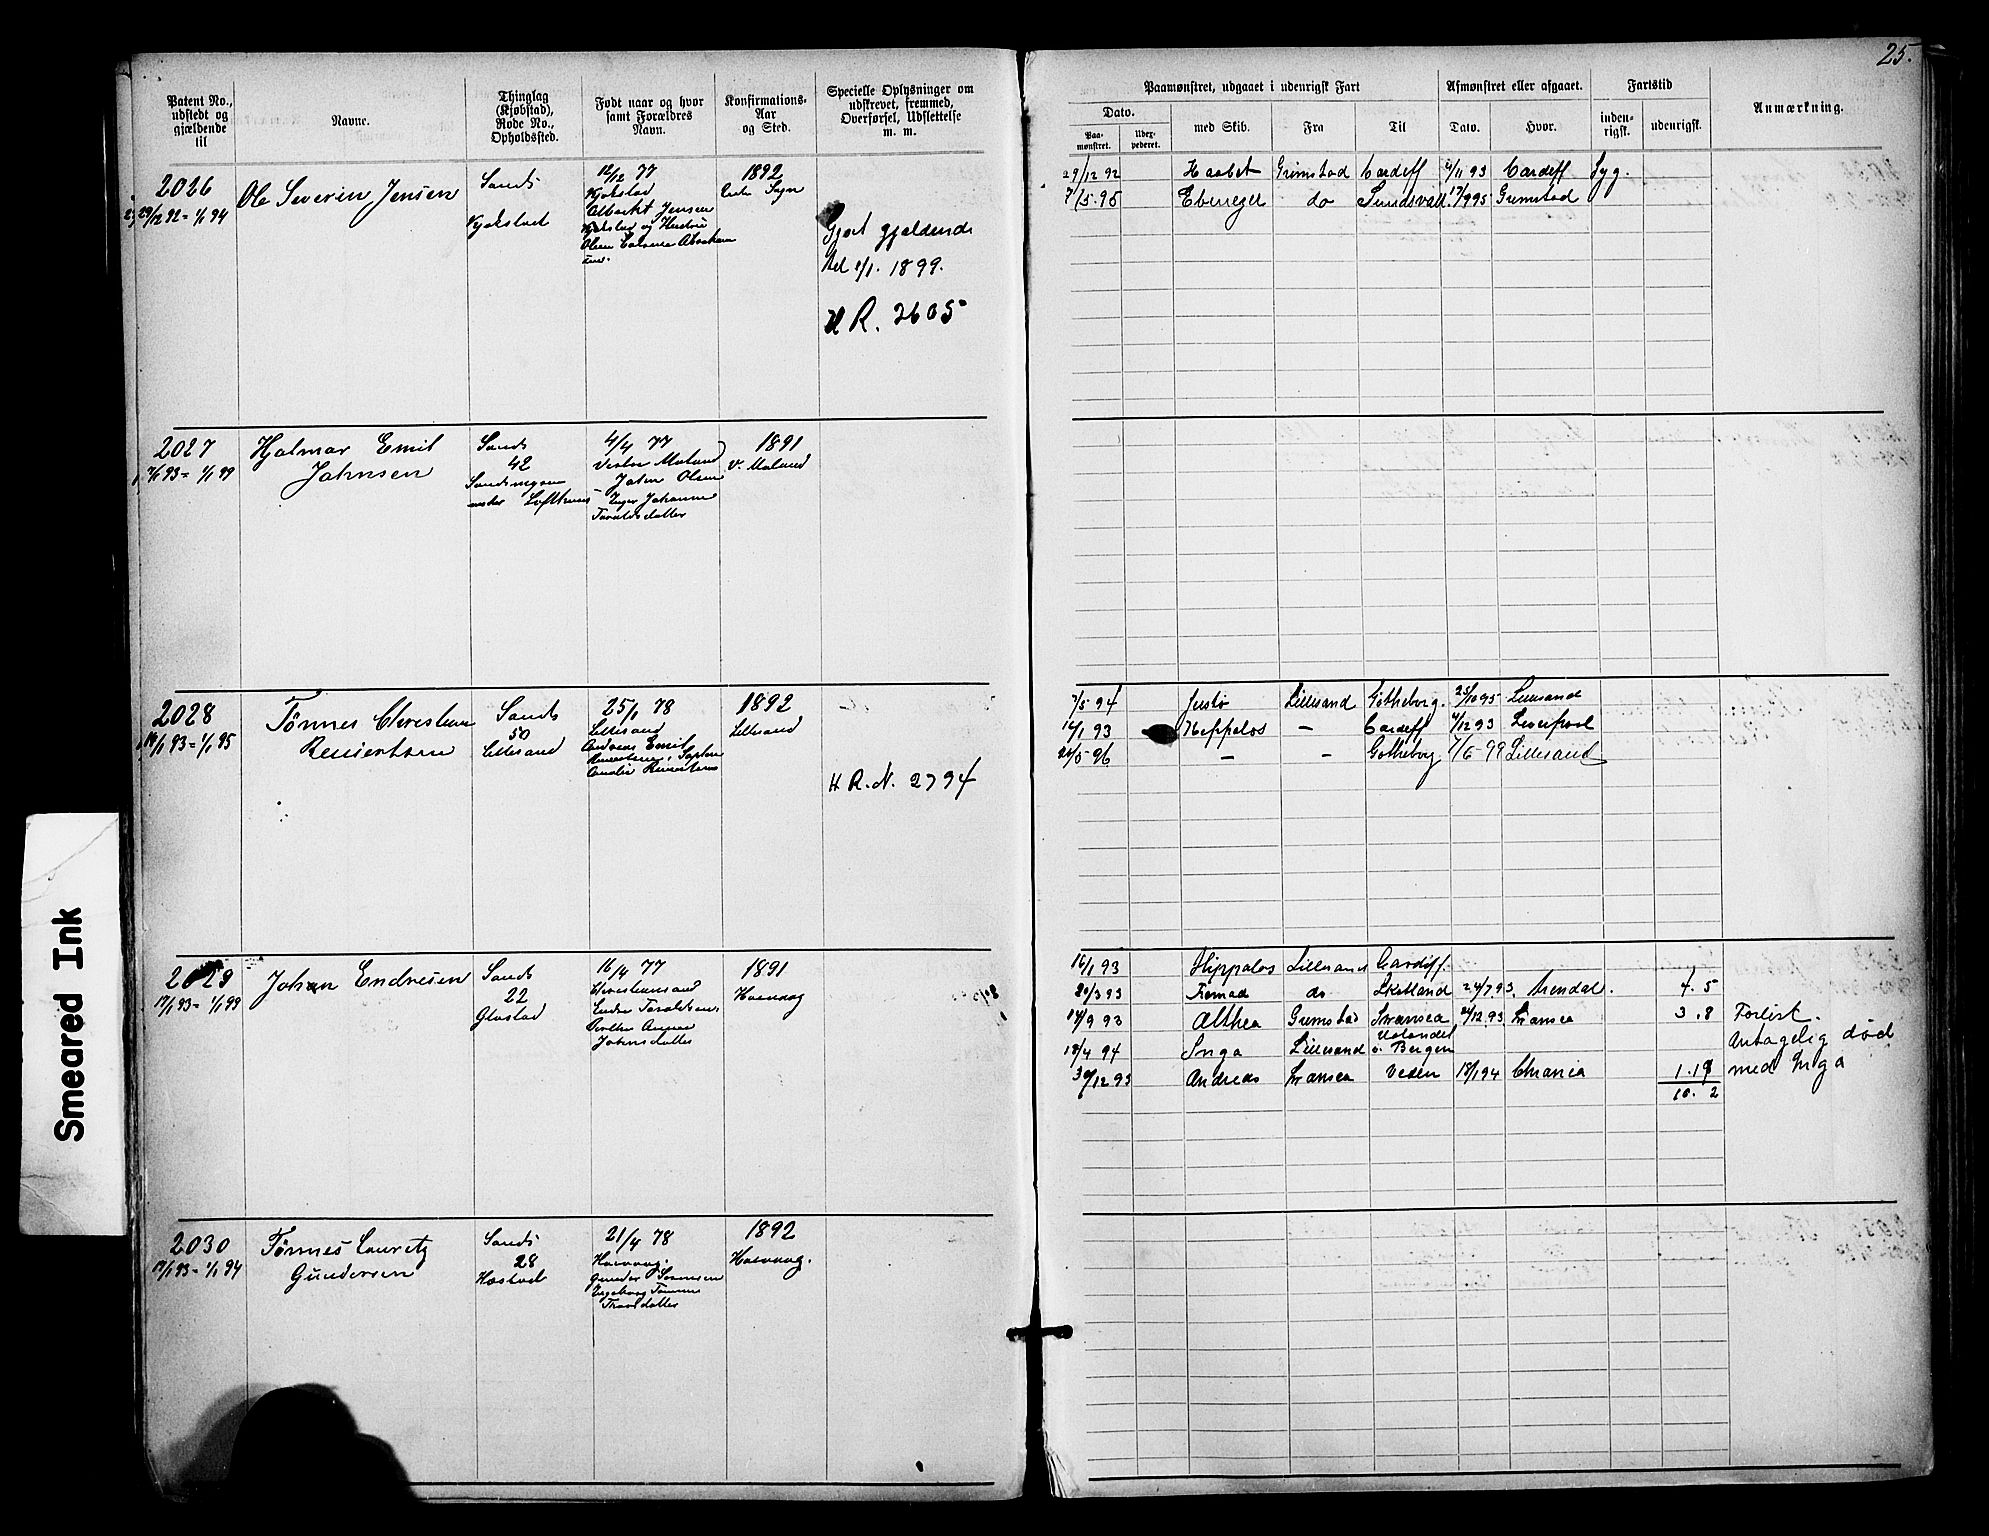 25.
Patent No., udstedt og gjældende til
Navne.
Thinglag (Kjøbstad), Rode No., Opholdssted.
Født naar og hvor samt Forældres Navn.
Konfirmations-Aar og Sted.
Specielle Oplysninger om udskrevet, fremmed, Overførsel, Udslettelse m. m.
Paamønstret, udgaaet i udenrigsk Fart
Afmønstret eller afgaaet.
Fartstid
Anmærkning.
Dato.
Paamønstret.
Uderpederet.
med Skib.
Fra
Til
Dato.
Hvor.
indenrigsk.
udenrigsk.
2026
29/12 92 = 1/1 94
Ole Severin Jensen
Sands
Kjøkstad
12/12 77
Kjøkstad
Jensen
1892
Sogn
Gjort gjældende
til 1/1. 1899.
H R. 2605
29/12 92 Haabet Grimstad Cardiff 4/11 93 Cardiff Syg.
7/5. 95 Ebeneger do Sundsvall 17/9 95 Grimstad
2027
7/1 93 = 1/1 99
Hjalmar Emil
Johnsen
Sands
42
under Lofthuus
4/4 77
Vestre Moland
John Olsen
Inger Johanne
Taraldsdatter
1891
V. Moland
2028
14/1 93 = 1/1 95
Tønnes Christian
Reinertsen
Sands
50
Lillesand
25/1 78
Lillesand
Andreas Emil
Reinertsen
1892
Lillesand
H R. N. 2794
7/5 94 Justø Lillesand Gøtheborg. 25/10 95 Lillesand
14/1 93 Hippalos — Cardiff 4/12 93 Liverpool
20/5 96 — — Gøtheborg 7/6 99 Lillesand
2029
17/1 93 = 1/1 99
Johan Endresen
Sands
22
Glastad
16/4 77
Christiansand
Endre Taraldsen
Johnsdatter
1891
Høivaag
16/1 93 Hippalos Lillesand Cardiff.
20/3 93 Fremad do Skotland 24/7 93. Arendal. 4. 5
14/9 93 Althea Grimstad Swansea /12 93. Swansea 3. 8 Forlist.
18/4 94 Inga Lillesand Udlandet o. Bergen Antagelig død
30/12 93 Andreas Swansea Veden 18/1 94 Chrania 1. 19 med Inga
10. 2
2030
17/1 93 = 1/1 94
Tønnes Lauritz
Gundersen
Sands
28
Høstad
21/4 78
Høivaag.
Gunder Sørensen
Ingeborg Tomine
Thorsdatter
1892
Høivaag.
Smeared Ink